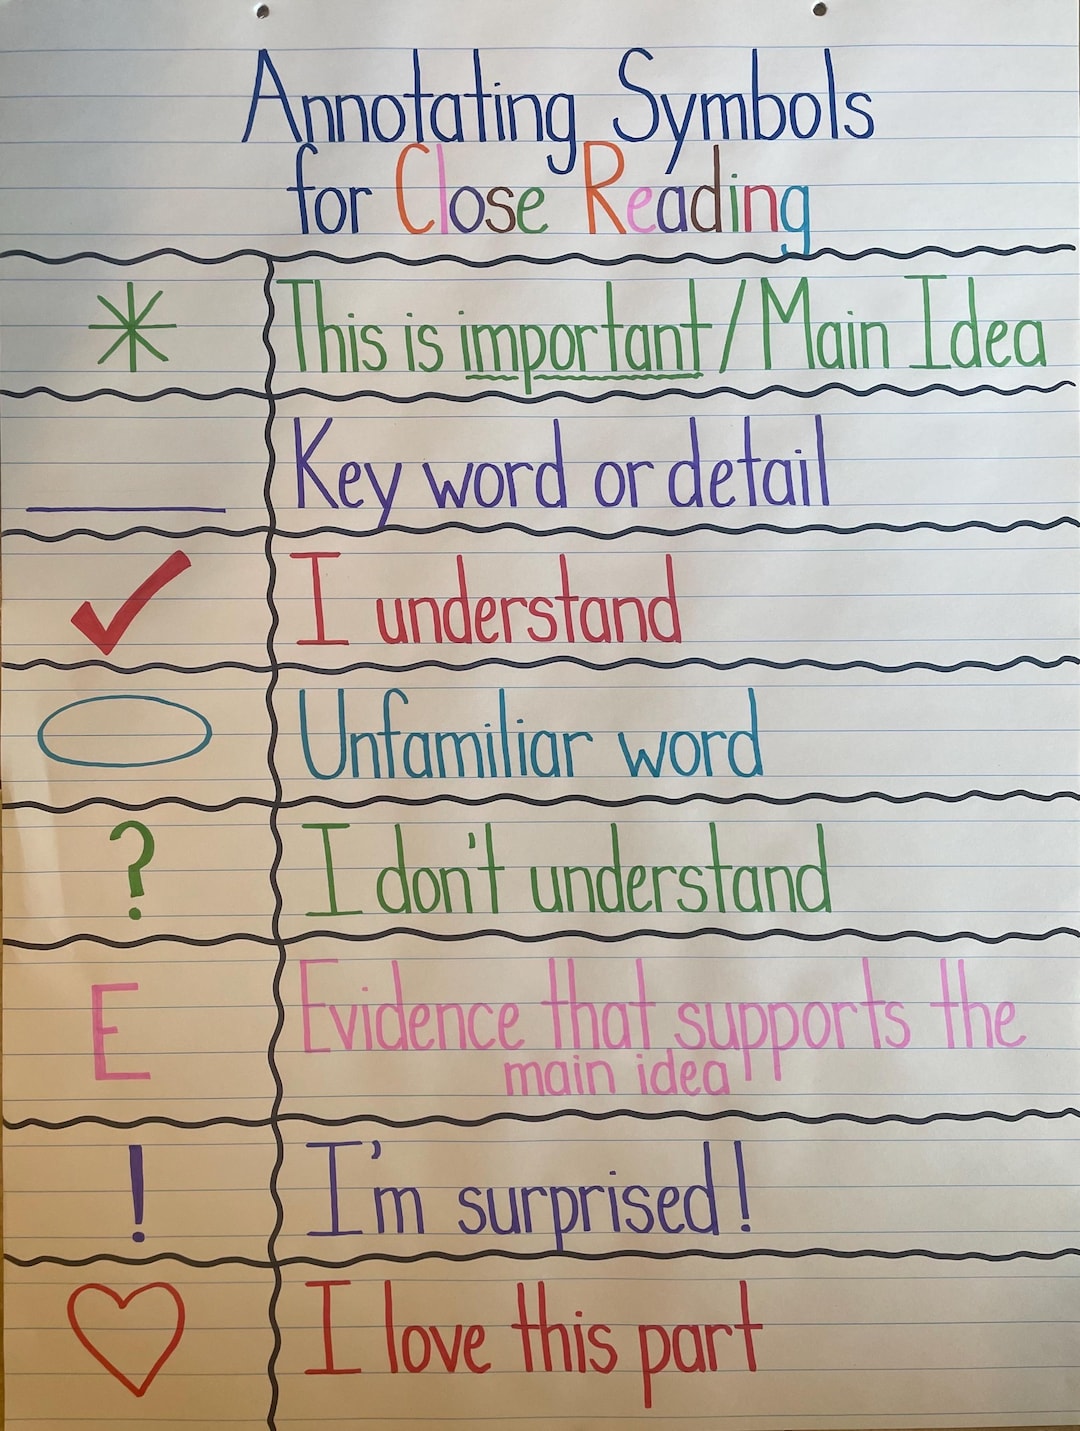 Annotating Symbols
for Close Reading
* This is important/Main Idea
Key word or detail
✓ I understand
Unfamiliar word
? I don't understand
E Evidence that supports the
main idea
! I'm surprised!
I love this part